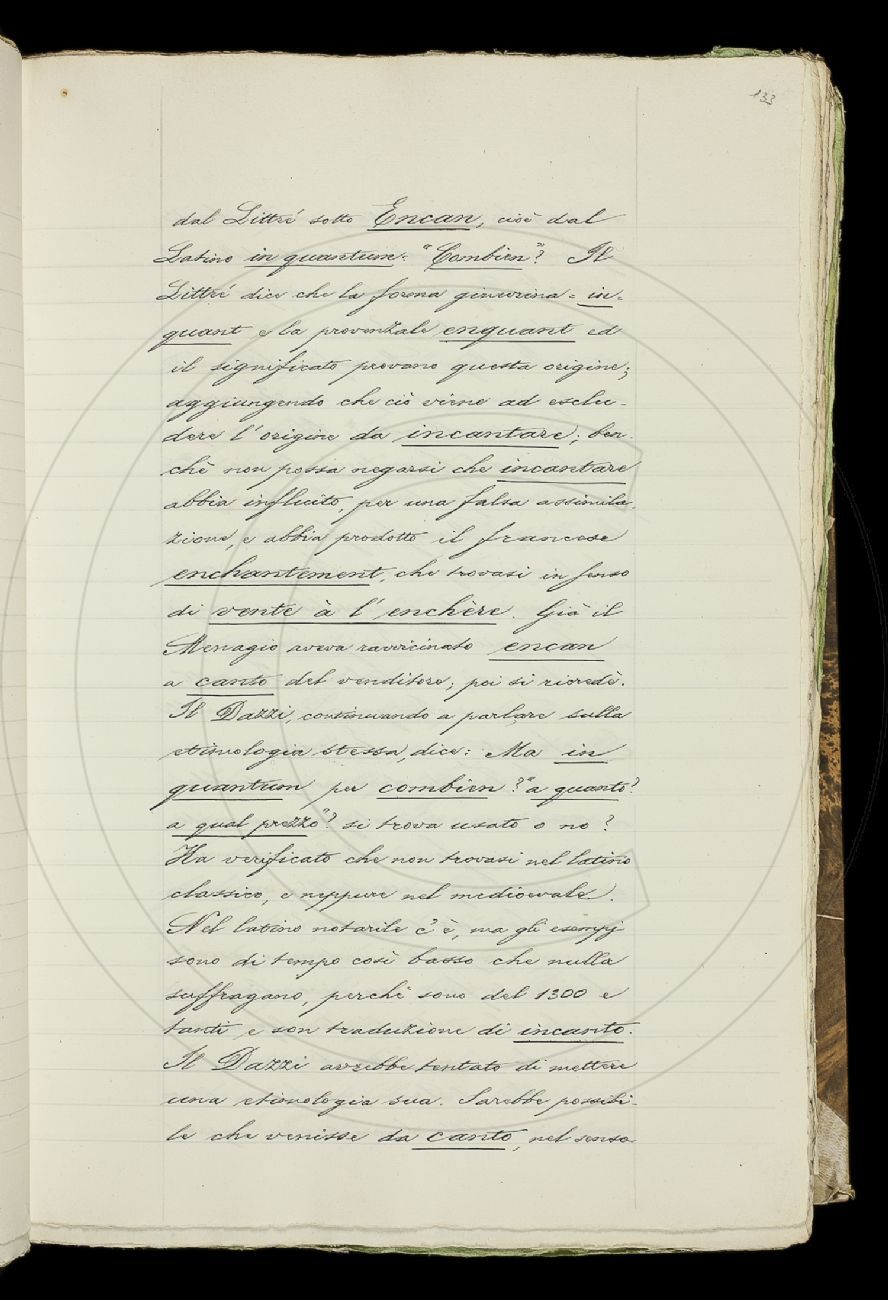 133
dal Littré sotto Encan, cioè dal
Latino in quantum. "Combien"? Il
Littré dice che la forma ginevrina = in-
quant e la provenzale enquant ed
il significato provano questa origine;
aggiungendo che ciò viene ad esclu-
dere l'origine da incantare; ben-
chè non possa negarsi che incantare
abbia influito, per una falsa assimila-
zione, e abbia prodotto il francese
enchantement, che trovasi in senso
di vente à l'enchère. Già il
Menagio aveva ravvicinato encan
a canto del venditore; poi si ricredè.
Il Dazzi, continuando a parlare sulla
etimologia stessa, dice: Ma in
quantum per combien? "a quanto?
a qual prezzo"? si trova usato o no?
Ha verificato che non trovasi nel latino
classico, e neppure nel medioevale.
Nel latino notarile c'è, ma gli esempj
sono di tempo così basso che nulla
suffragano, perchè sono del 1300 e
tanti e son traduzione di incanto.
Il Dazzi avrebbe tentato di mettere
una etimologia sua. Sarebbe possibi-
le che venisse da canto, nel senso